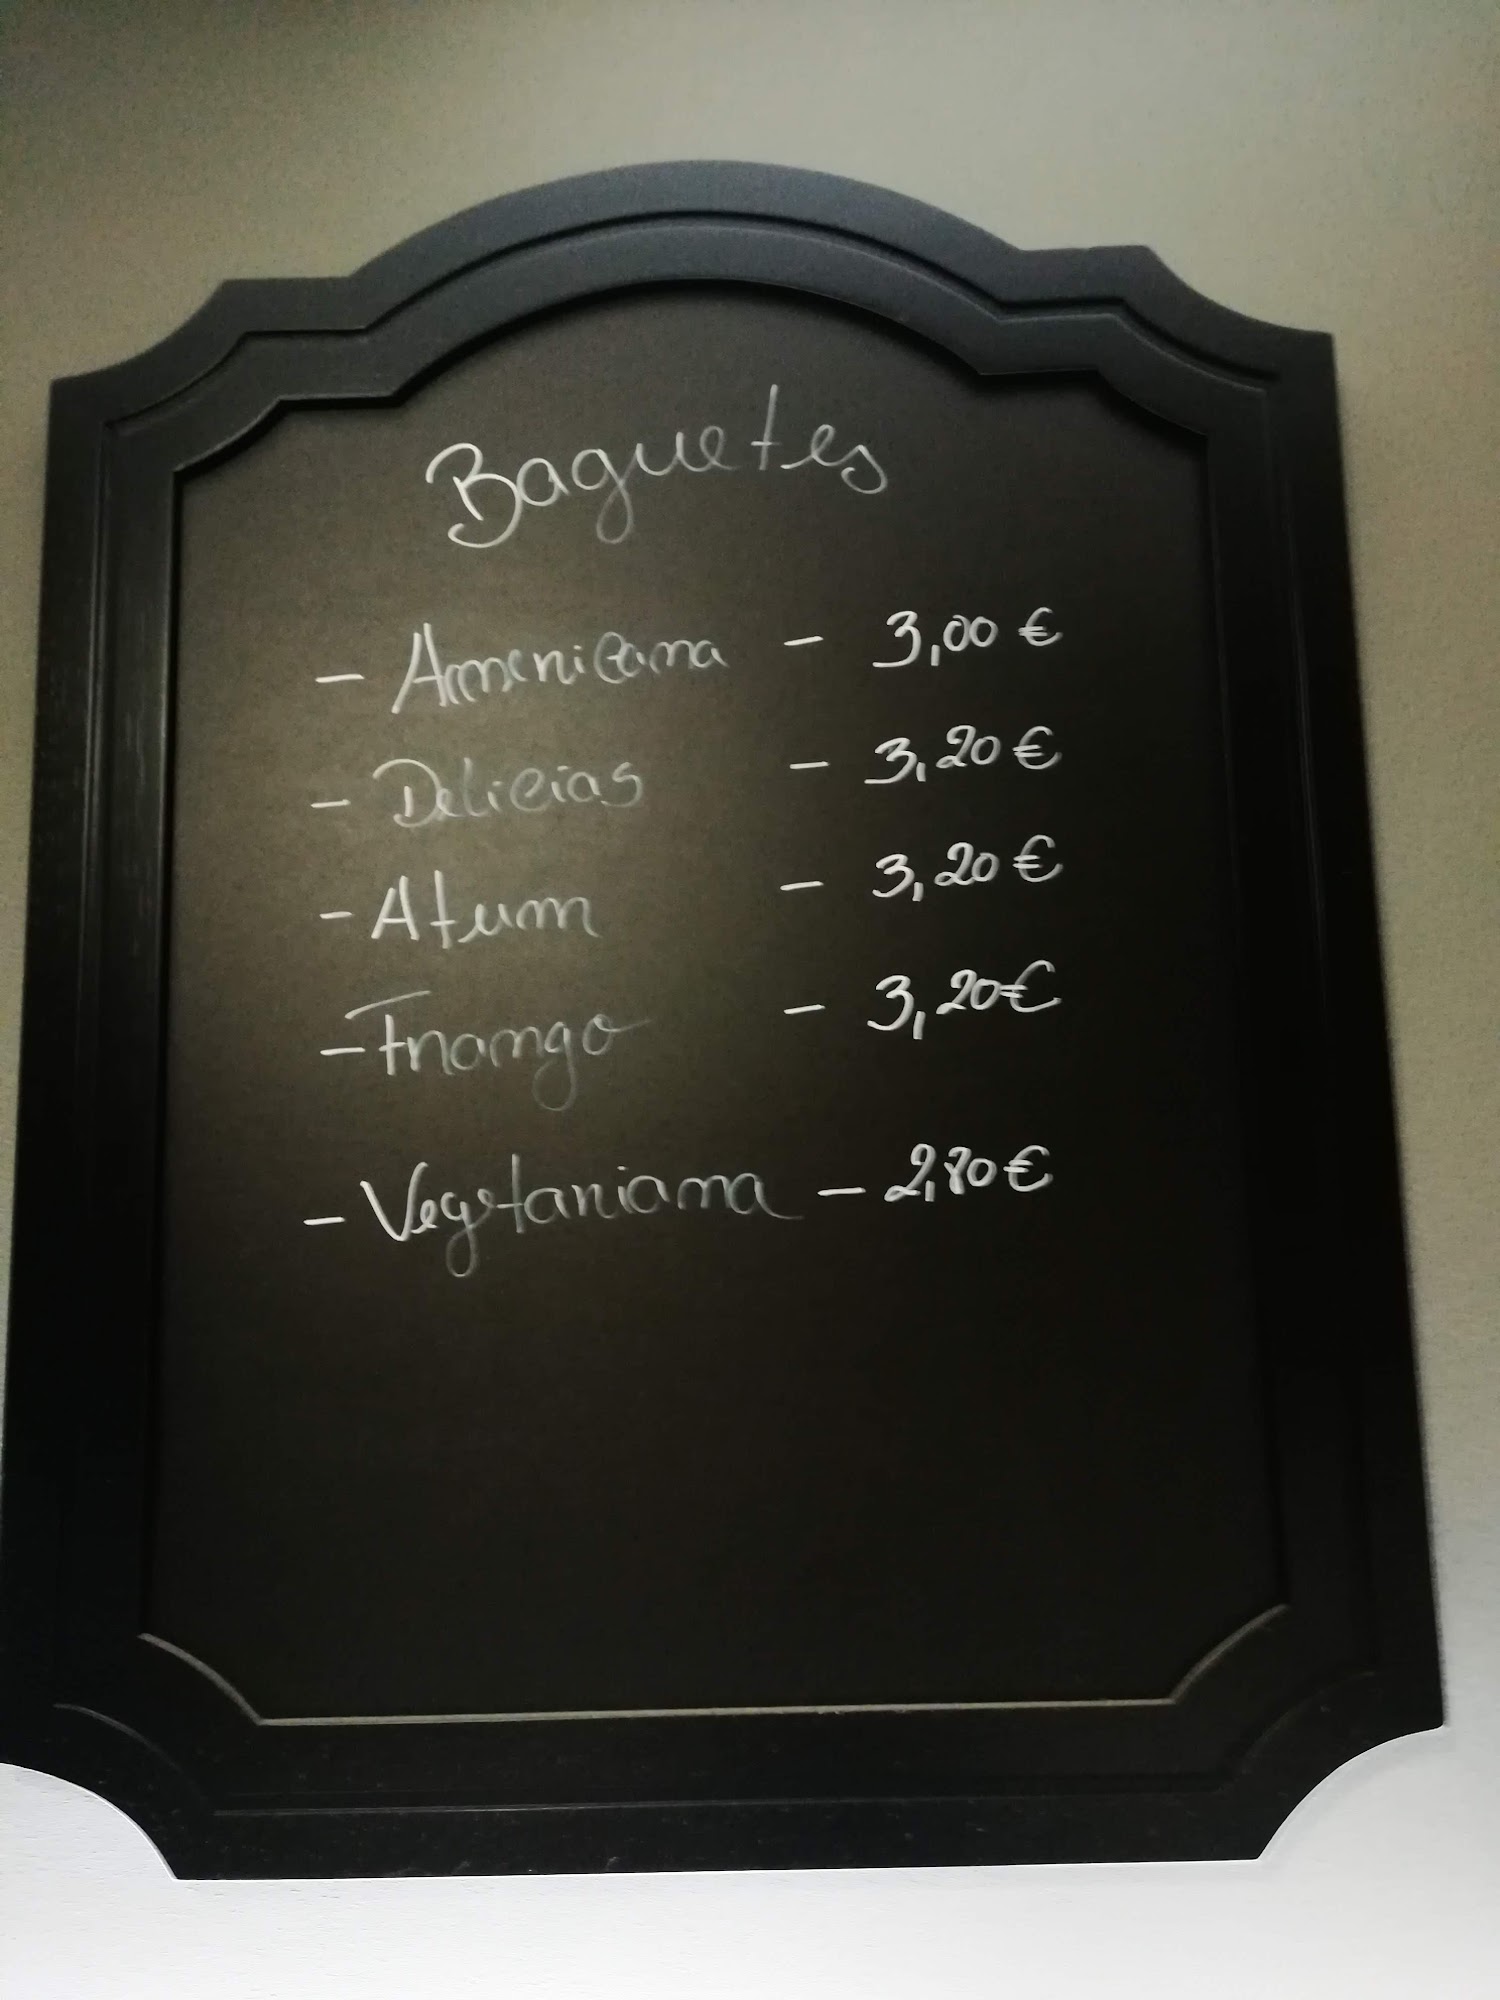 Baguetes
- Americana - 3,00 €
- Delicias - 3,20 €
- Atum - 3,20 €
- Frango - 3,20 €
- Vegetariana - 2,80 €